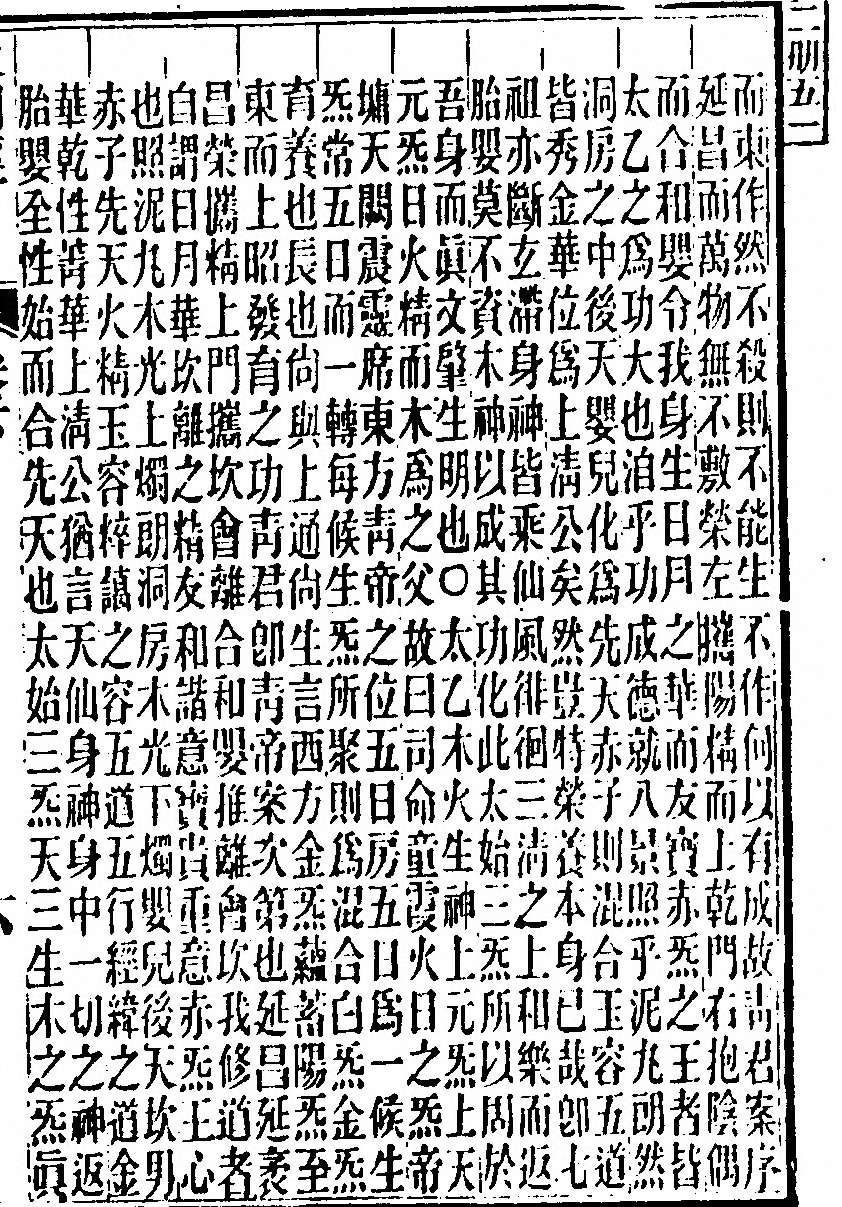 二朋五一
而東作然不殺則不能生不作何以有成故靑君案序
延昌而萬物無不敷榮左䕶陽精而上乾門右抱陰偶
而合和嬰令我身生日月之華而友寶赤炁之王者皆
太乙之爲功大也洎乎功成德就八景照乎泥丸朗然
洞房之中後天嬰兒化爲先天赤子則混合玉容五道
皆秀金華位爲上淸公矣然豈特榮養本身已哉卽七
祖亦斷玄滯身神皆乘仙風徘徊三淸之上和樂而返
胎嬰莫不資木神以成其功化此太始三炁所以周於
吾身而眞文肇生明也○太乙木火生神上元炁上天
元炁日火精而木爲之父故曰司命童霞火日之炁帝
墉天關震靈席東方靑帝之位五日房五日爲一候生
炁常五日而一轉每候生炁所聚則爲混合白炁金炁
育養也長也尙與上通尙生言西方金炁蘊蓄陽炁至
東而上昭發育之功靑君卽靑帝案次第也延昌延袤
昌榮攜精上門攜坎會離合和嬰推離會坎我修道者
自謂日月華坎離之精友和諧意寶貴重意赤炁王心
也照泥丸木光上燭朗洞房木光下燭嬰兒後天坎男
赤子先天火精玉容粹藹之容五道五行經緯之道金
華乾性菁華上淸公猶言天仙身神身中一切之神返
胎嬰至性始而合先天也太始三炁天三生木之炁眞